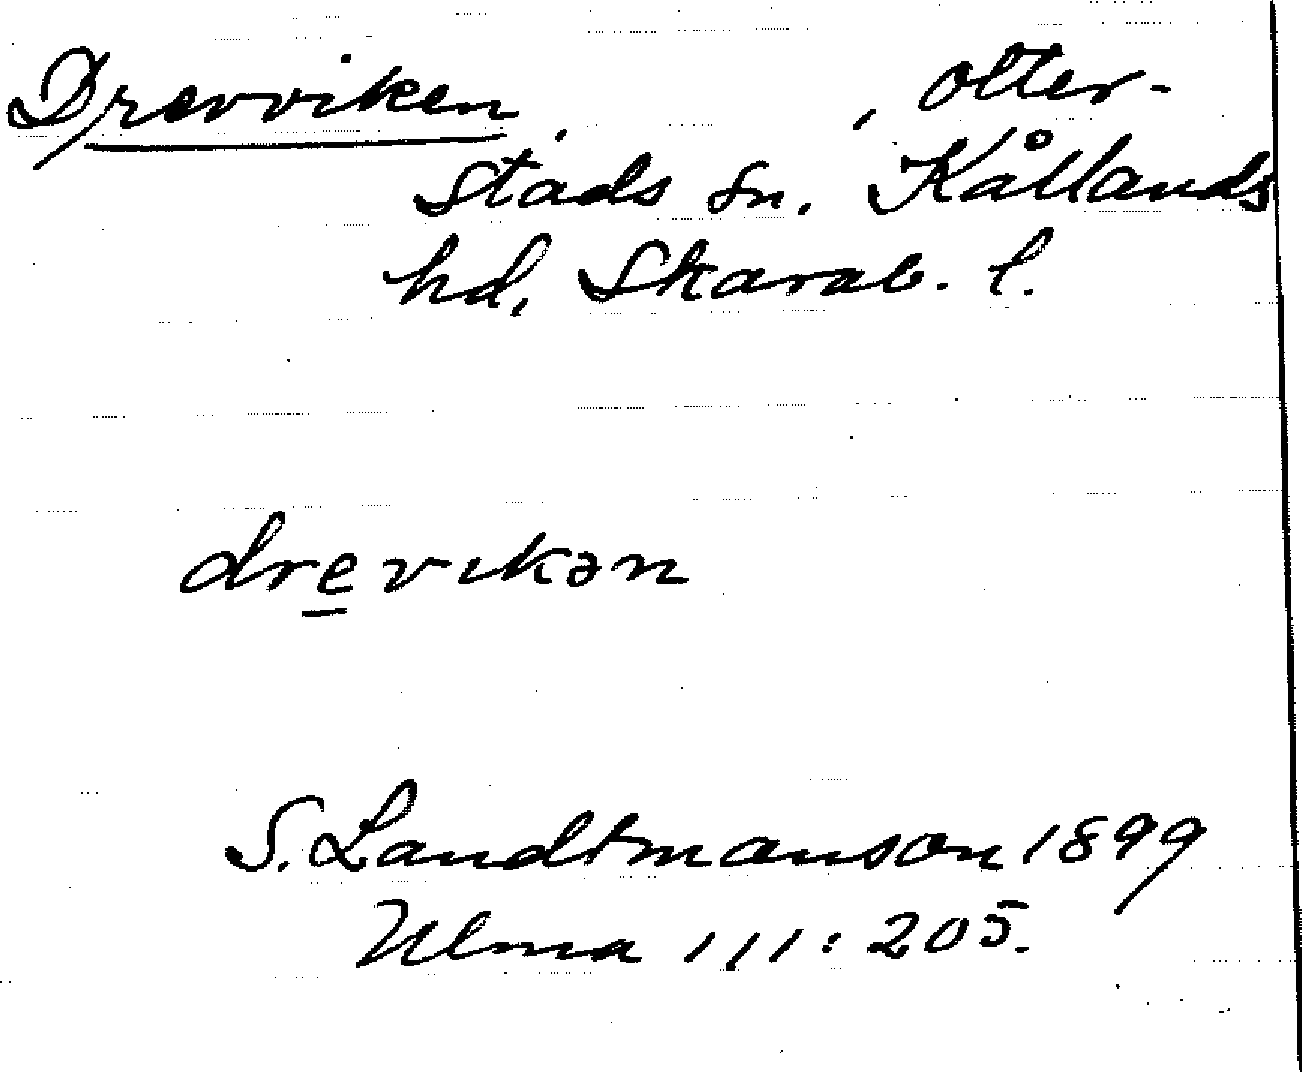 Drevviken, , Otter-
stads sn. Kållands
hd, Skarab. l.
drevikən
S. Landtmanson 1899
Ulma 111:205.